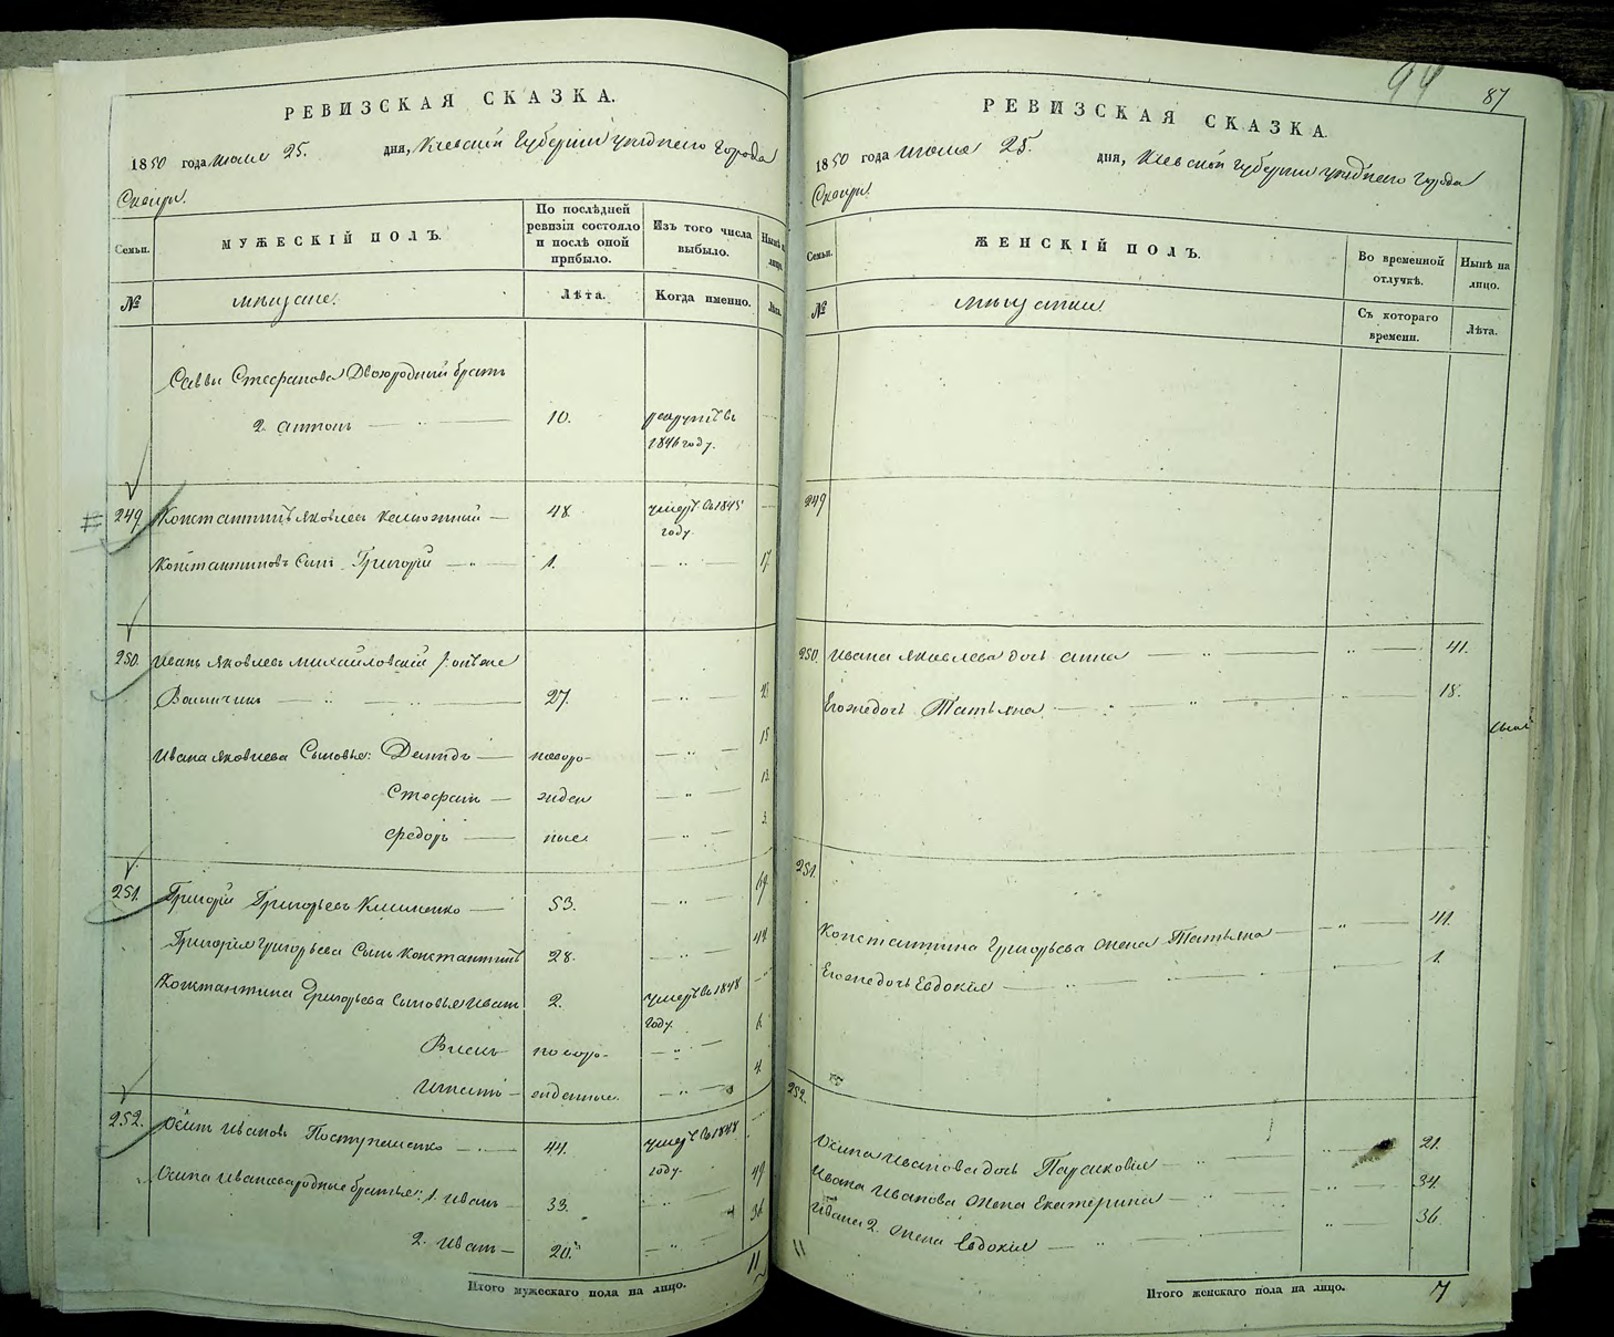 РЕВИЗСКАЯ СКАЗКА.
1850 года июля 25. дня, Кіевской Губерніи уѣзднего города
Сквири.
Семьи. МУЖЕСКІЙ ПОЛЪ. По послѣдней ревизіи состояло и послѣ оной прибыло. Изъ того числа выбыло. Нынѣ на лицо.
№ мѣщане. Лѣта. Когда именно. Лѣта.
Саввы Стефанова Двоюродный братъ
2. Антонъ 10. рекрутъ въ
1846 году.
249 Константинъ Яковлевъ 48. умеръ въ 1845
году.
Константиновъ Сынъ Григорій 1. 17.
250. Иванъ Яковлевъ Михайловскій
27.
Ивана Яковлева Сыновья: Демидъ новоро- 18
Стефанъ жден 13.
Федоръ ные 3.
251. Григорій Григорьевъ Клименко 53. 69
Григорія Григорьева Сынъ Константинъ 28. 44
Константина Григорьева Сыновья Иванъ 2. умеръ въ 1848
году. 6
новоро- 4
Игнатій жденные.
252. Осипъ Ивановъ 44. умеръ въ 1848
году.
Осипа Иванова родные братья: 1. Иванъ 33. 49
2. Иванъ 20. 36
11
Итого мужескаго пола на лицо.
94 87
РЕВИЗСКАЯ СКАЗКА.
1850 года июля 25. дня, Кіевской Губерніи уѣзднего города
Сквири.
Семьи. ЖЕНСКІЙ ПОЛЪ. Во временной отлучкѣ. Нынѣ на лицо.
№ мѣщанки. Съ котораго времени. Лѣта.
249
250. Ивана Яковлева дочь Анна 41.
Его же дочь Татьяна 18.
251.
Константина Григорьева жена Татьяна 41.
Его же дочь Евдокія 1.
252.
Осипа Иванова дочь Парасковія 21.
Ивана Иванова жена Екатерина 34.
Ивана 2. жена Евдокія 36.
11
Итого женскаго пола на лицо. 7